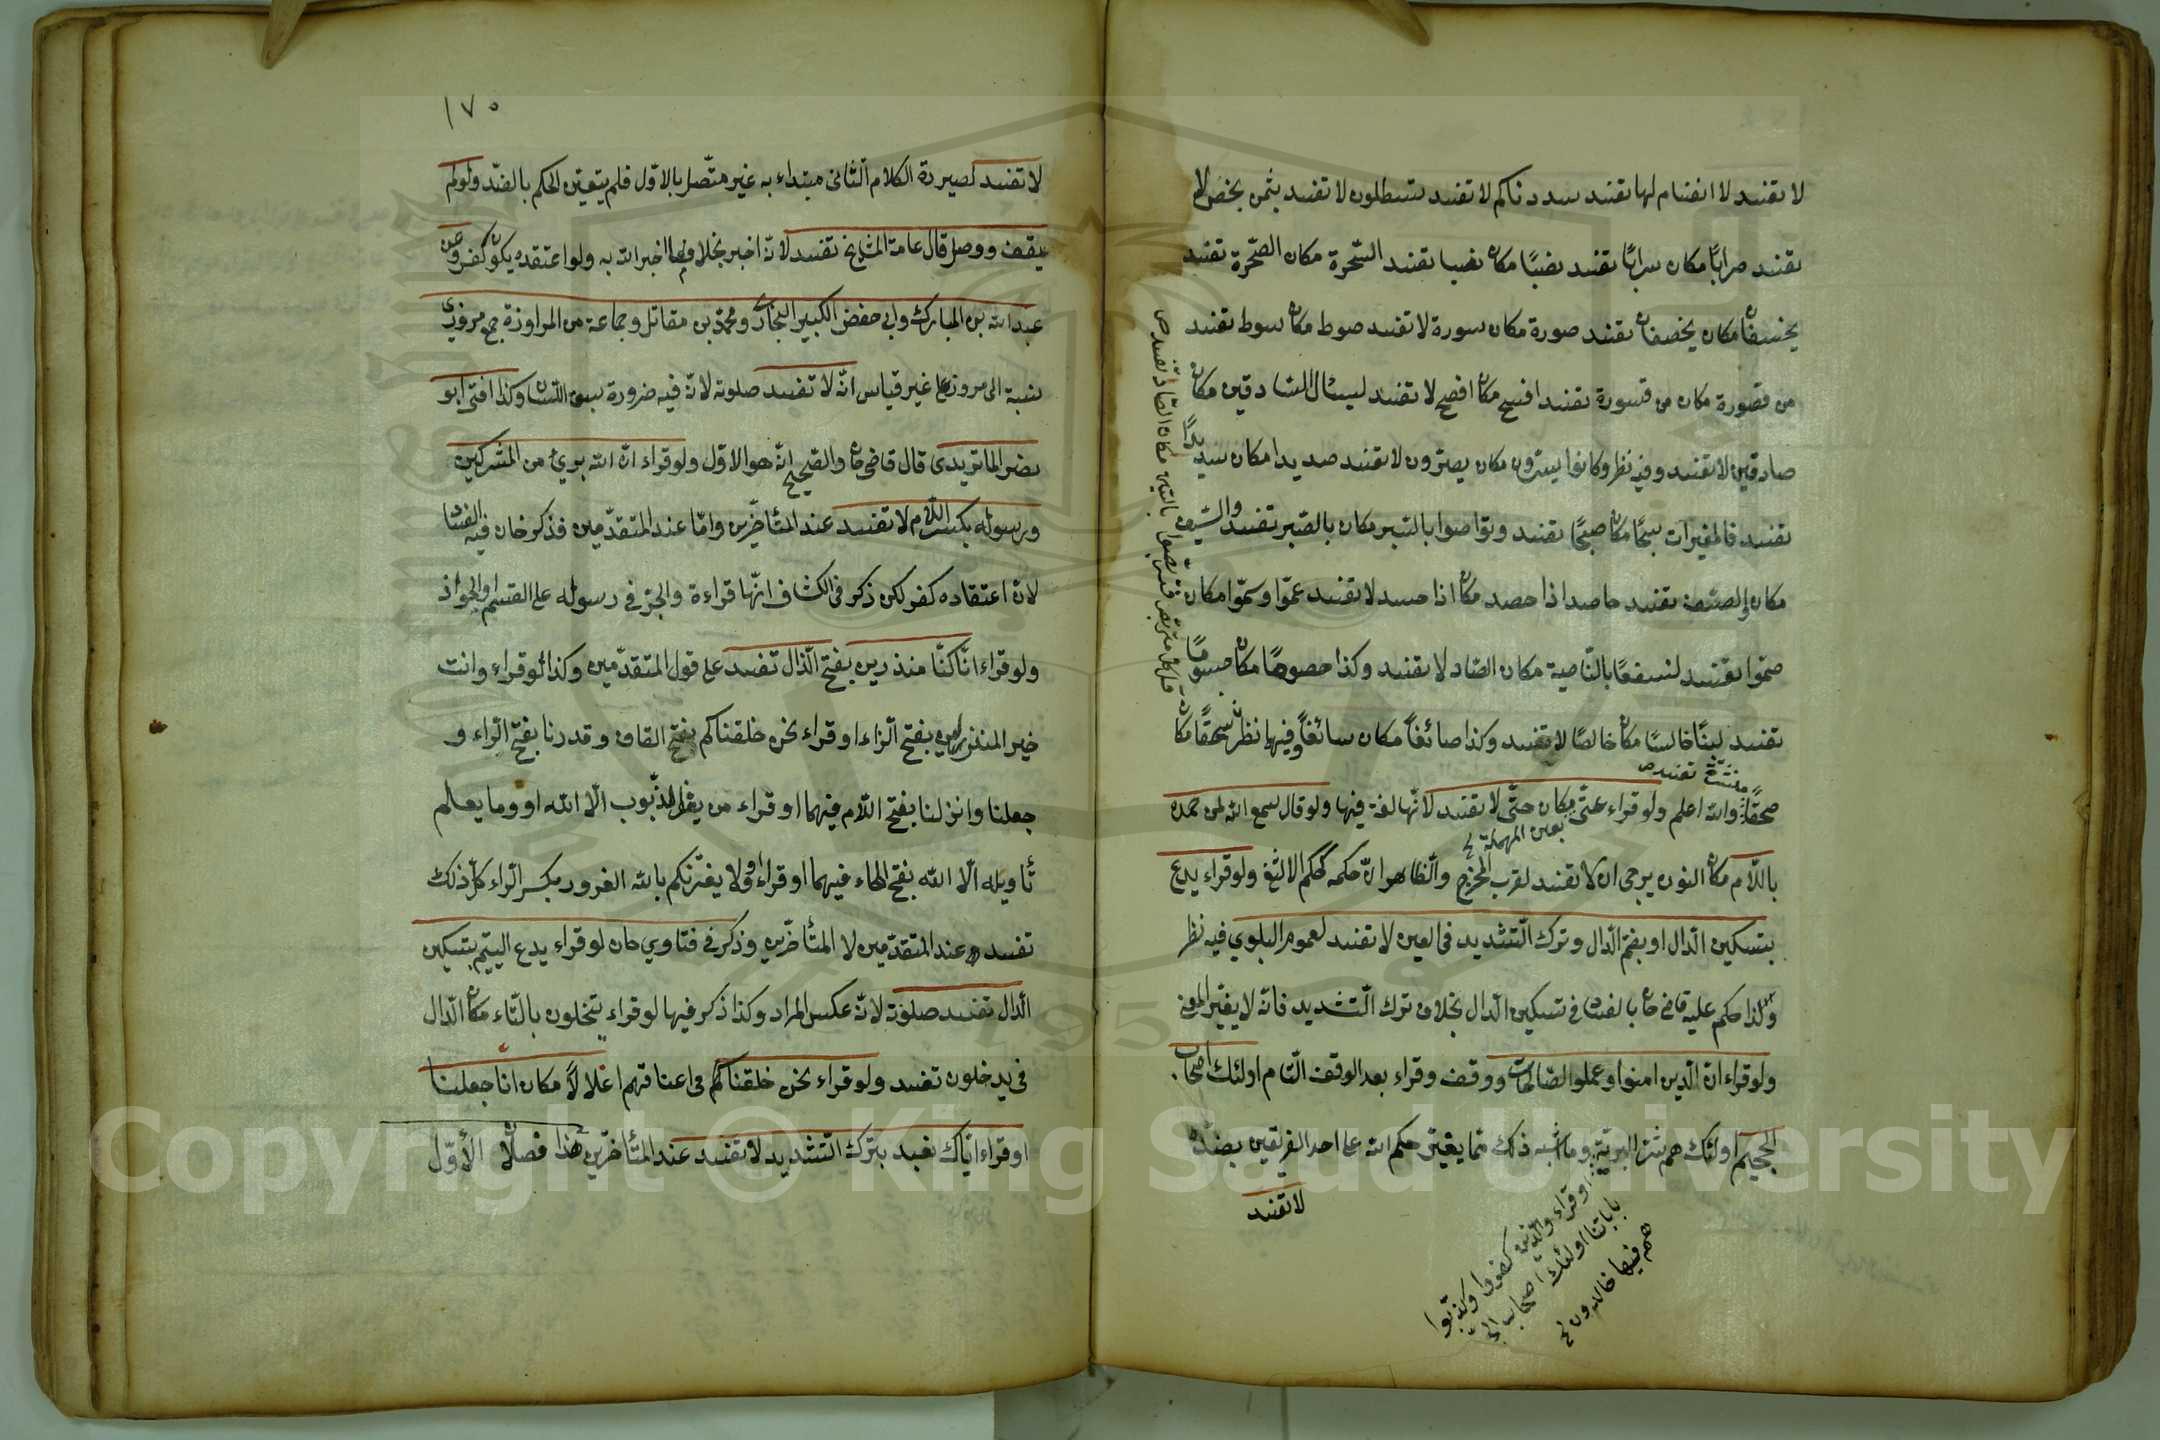 لا تفسد لا انفسام لها تفسد سددناكم لا تفسد تسطلون لا تفسد بثمن بخص لا
تفسد صرابًا مكان سرابًا تفسد نفسًا مكان نفسا تفسد السّحرة مكان الصّخرة تفسد
يخسفان مكان يخصفان تفسد صورة مكان سورة لا تفسد صوط مكان سوط تفسد
من قصورة مكان من قسورة تفسد افسح مكان افصح لا تفسد ليسال السادقين مكان
صادقين لا تفسد وفيه نظر وكانوا يسرّون مكان يصرّون لا تفسد صديدا مكان سديدًا
تفسد فالمغيرات سبحًا مكان صبحًا تفسد وتواصوا بالسبر مكان بالصّبر تفسد والسّيف
مكان والصيف تفسد حاصد اذا حصد مكان اذا حسد لا تفسد عمّوا وسمّوا مكان
صمّوا تفسد لنسفعًا بالنّاصية مكان الصّاد لا تفسد وكذا حصومًا مكان حسومًا
تفسد لبنًا خالسًا مكان خالصًا لا تفسد وكذا صائغًا مكان سائغًا وفيها نظر سحقًا مكان
صحقًا والله اعلم ولو قراء عتّى مكان حتّى لا تفسد لانّها لغة فيها ولو قال سمع الله لمن حمده
باللّام مكان النون يرجى ان لا تفسد لقرب المخرج والظاهر انّ حكمه كحكم الالثغ ولو قراء يدع
بتسكين الدّال او بضم الدّال وترك التّشديد في العين لا تفسد لعموم البلوي فيه نظر
وكذا حكم عليه قاضي خان بالفساد في تسكين الدّال بخلاف ترك التّشديد فانّه لا يغيّر المعنى
ولو قراء انّ الّذين امنوا وعملوا الصّالحات ووقف وقراء بعد الوقف التّام اولئك اصحاب
الجحيم اولئك هم شرّ البريّة وما اشبه ذلك ممّا يغيّر حكم الله على احد الفريقين بضدّه
لا تفسد
مكان الصّاد تفسد صح
بعين المهملة
او قراء والّذين كفروا وكذّبوا
باياتنا اولئك اصحاب الجنّة
هم فيها خالدون
١٧٠
لا تفسد لصيرورة الكلام الثّاني مبتداء به غير متّصل بالاوّل فلم يتعيّن الحكم بالضّد ولو لم
يقف ووصل قال عامة المشايخ تفسد لانّه اخبر بخلاف ما اخبر الله به ولو اعتقده يكون كفر وعن
عبد الله بن المبارك وابي حفص الكبير البخاري ومحمد بن مقاتل وجماعة من المراوزة جمع مروزي
نسبة الى مرو على غير قياس انّه لا تفسد صلوته لانّ فيه ضرورة سبق اللّسان وكذا افتى ابو
نصر الماتريدي قال قاضي خان والصّحيح انّه هو الاوّل ولو قراء انّ الله بريء من المشركين
ورسوله بكسر اللّام لا تفسد عند المتأخّرين وامّا عند المتقدّمين فذكر خان فيه الفساد
لانّ اعتقاده كفر لكن ذكر في الكشاف انّها قراءة والجرّ في رسوله على القسم او الجوار
ولو قراء انّا كنّا منذرين بفتح الذّال تفسد على قول المتقدّمين وكذا لو قراء وانت
خير المنزلين بفتح الزّاء او قراء نحن خلقناكم بفتح القاف وقدرنا بفتح الرّاء و
جعلنا وانزلنا بفتح اللّام فيهما او قراء من يغفر الذّنوب الّا الله او وما يعلم
تأويله الّا الله بفتح الهاء فيهما او قراء ولا يغرّنكم بالله الغرور بكسر الرّاء كلّ ذلك
تفسد عند المتقدّمين لا المتأخّرين وذكر في فتاوي خان لو قراء يدع اليتيم بتسكين
الدّال تفسد صلوته لانّه عكس المراد وكذا ذكر فيها لو قراء يتخلون بالتّاء مكان الدّال
في يدخلون تفسد ولو قراء نحن خلقناكم في اعناقهم اغلالًا مكان انّا جعلنا
او قراء ايّاك نعبد بترك التّشديد لا تفسد عند المتأخّرين هذا فصل الأوّل